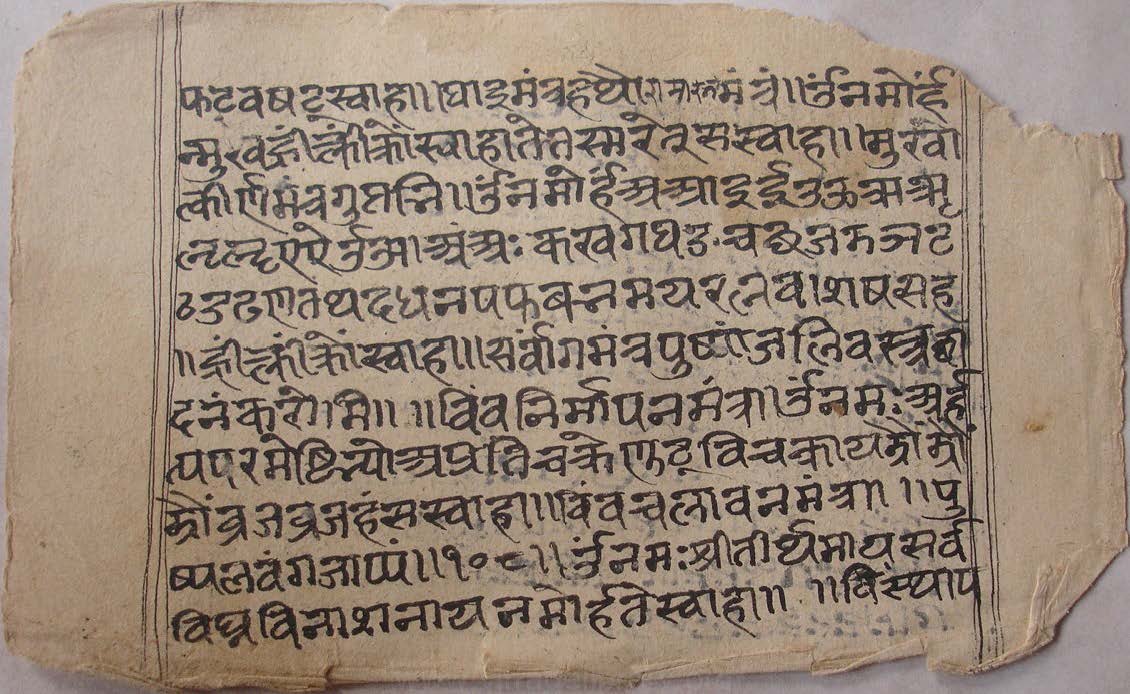 फट्वषट्स्वाहा॥घाइमंत्रहेथो मंत्रं॥ॐनमोर्हं
न्मुखह्रींक्लींक्रोंस्वाहातेतस्मरेतूसस्वाहा॥मुखो
त्कीर्णमंत्रगुप्तानि॥ॐनमोर्हंअआइईउऊऋॠ
ऌॡएऐॐऔअंअः कखगघङचछजझञट
ठडढणतथदधनपफबनमयरलवाशषसह
॥ह्रींक्लींक्रोंस्वाहा॥सर्वागमंत्रपुष्पांजलिवस्त्रछा
दनंकरोमि॥ ॥विंवनिर्मापनमंत्रा॥ॐनमःअर्ह
त्पपरमेष्टिन्योअप्रतिचक्रेफुट्विचक्रायझ्रौंझ्रौं
झ्रौंव्रजव्रजहंसस्वाहा॥विंवचलावनमंत्रा॥ ॥पु
ष्पलवंगजाप्पं॥१०८॥ॐनमःश्रीतीर्थमायसर्व
विघ्नविनाशनायनमोर्हतेस्वाहा॥ ॥विंस्थाप